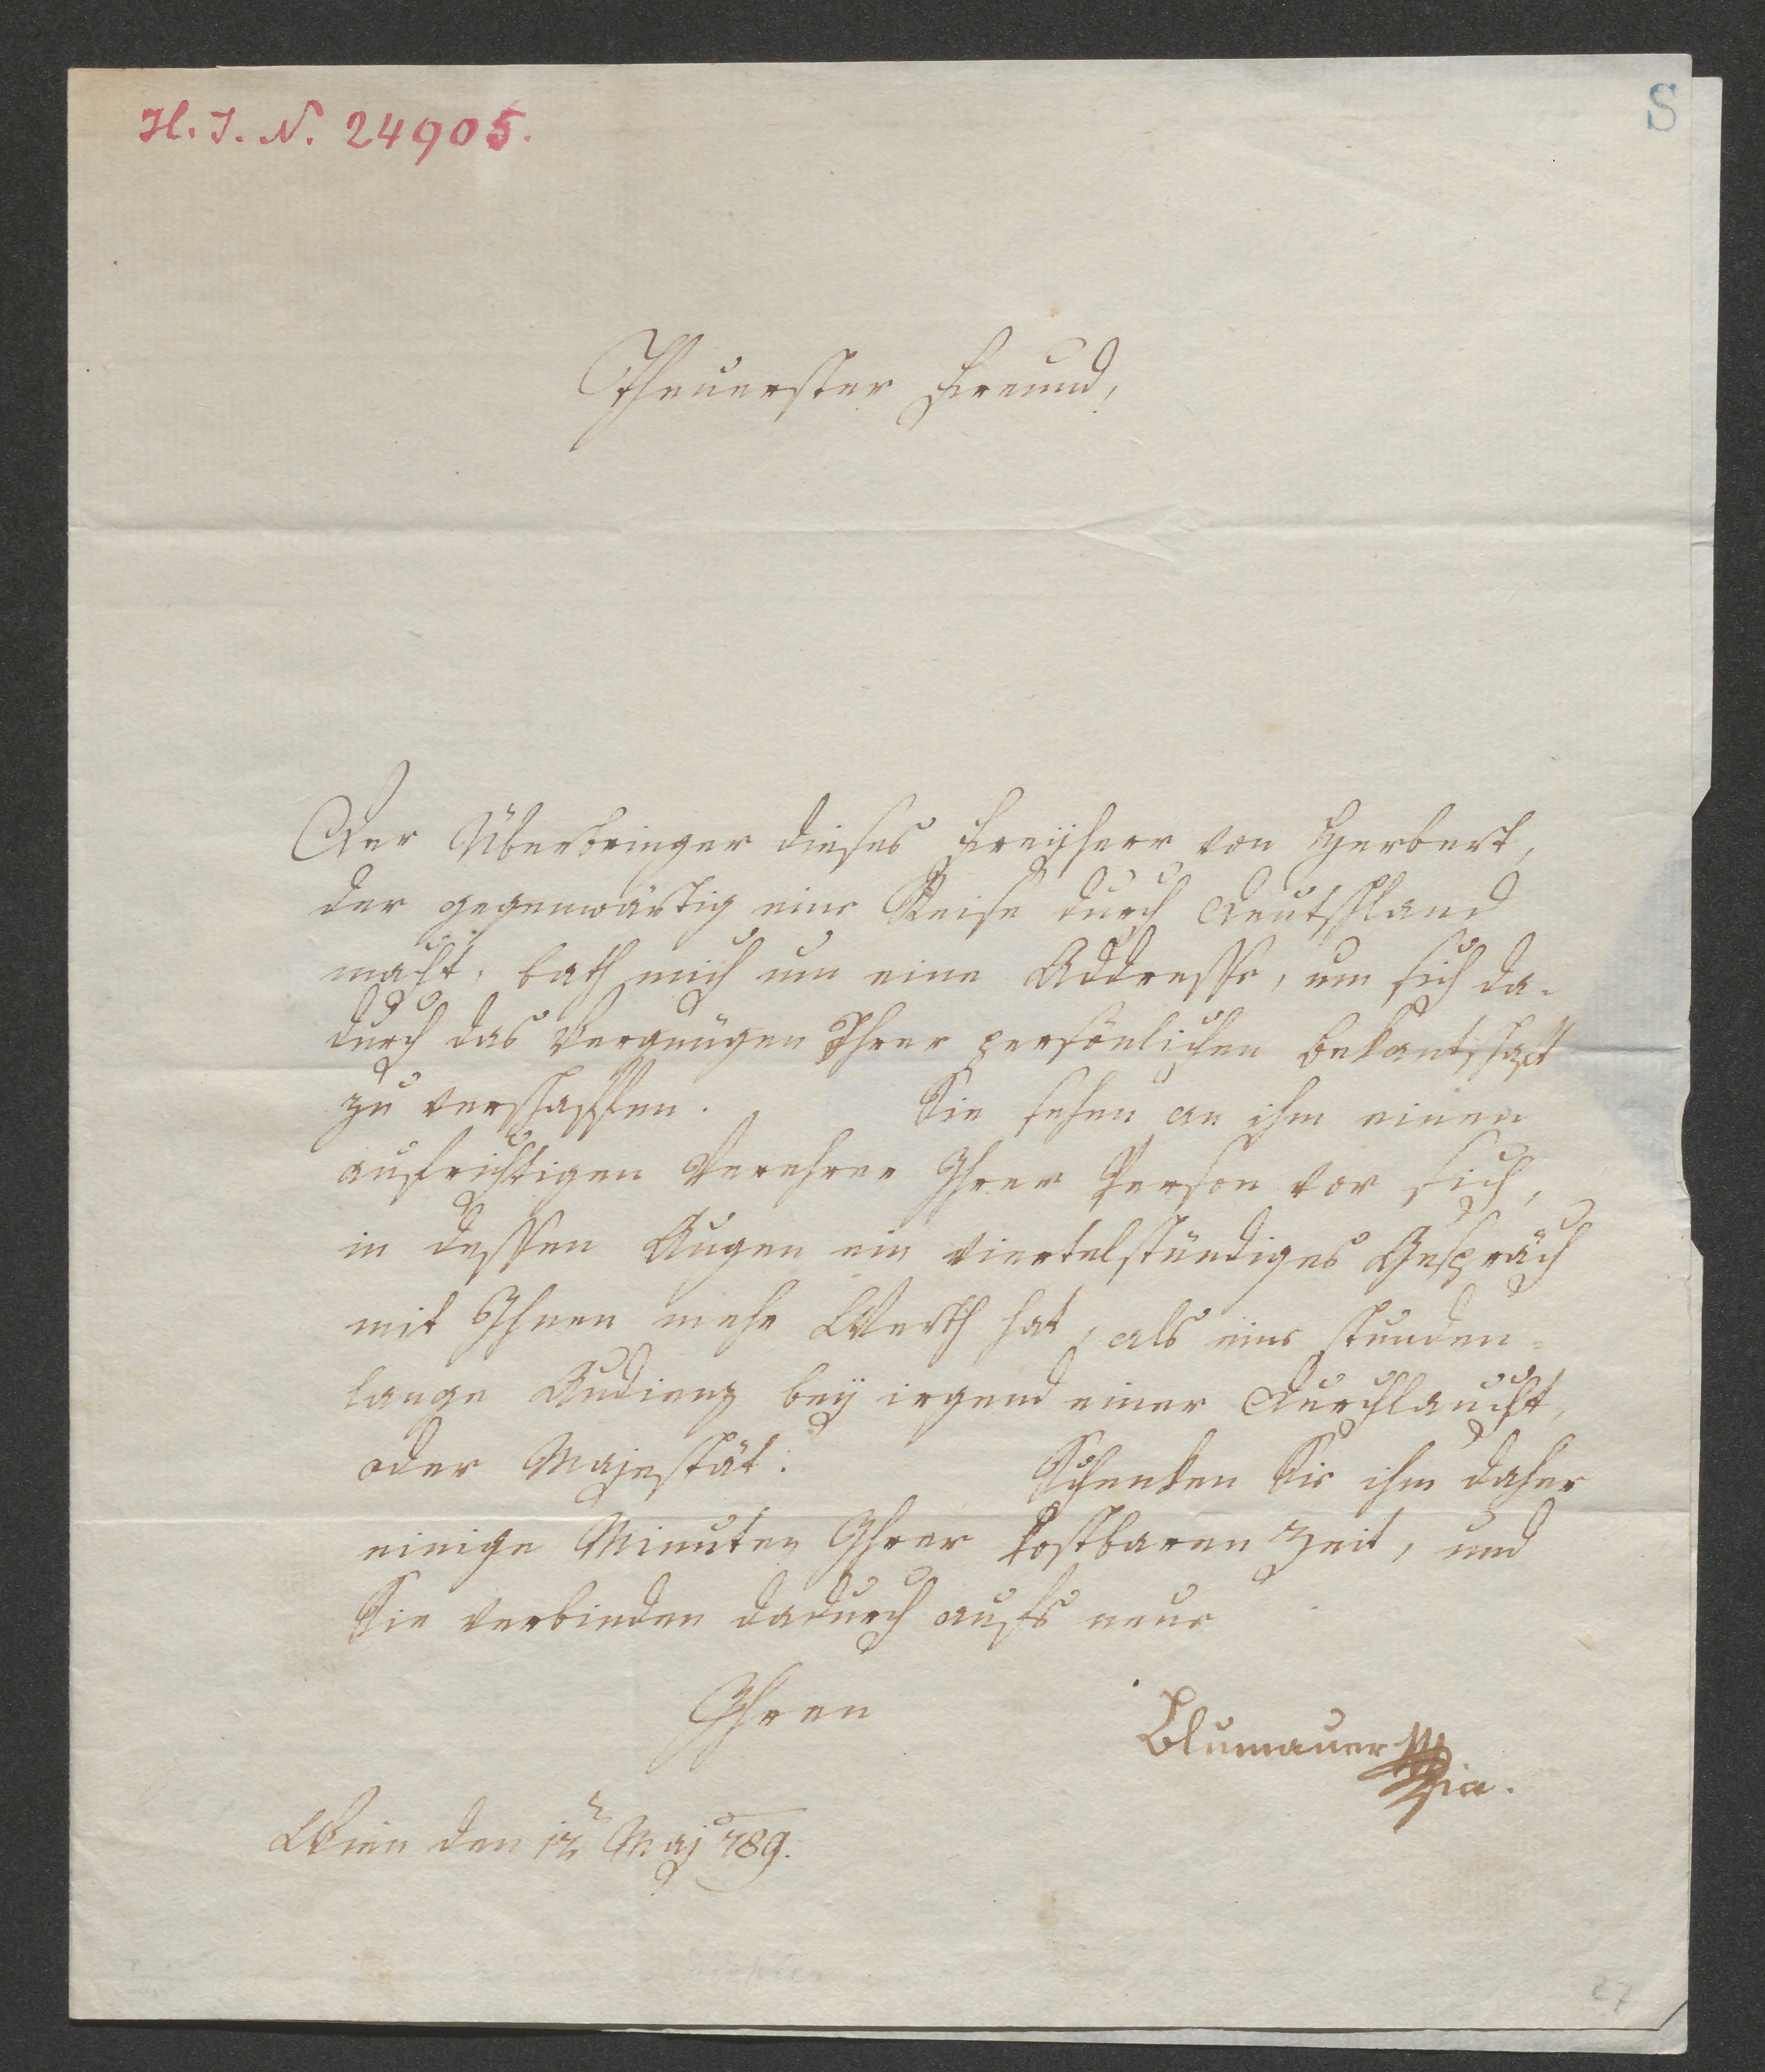 H. I. N. 24905.
S
Theuerster Freund,
Der Überbringer dieses Freyherr von Herbert,
der gegenwärtig eine Reise durch Deutschland
macht, bath mich um eine Addresse, um sich da-
durch das Vergnügen Ihrer persönlichen Bekantschaft
zu verschaffen. Sie sehen an ihm einen
aufrichtigen Verehrer Ihrer Person vor sich,
in dessen Augen ein viertelstündiges Gespräch
mit Ihnen mehr Werth hat, als eine stunden-
lange Audienz bey irgend einer Durchlaucht,
oder Majestät. Schenken Sie ihm daher
einige Minuten Ihrer kostbaren Zeit, und
Sie verbinden dadurch aufs neue
Ihren
Blumauer mpia.
Wien den 12t Maj 789.
27